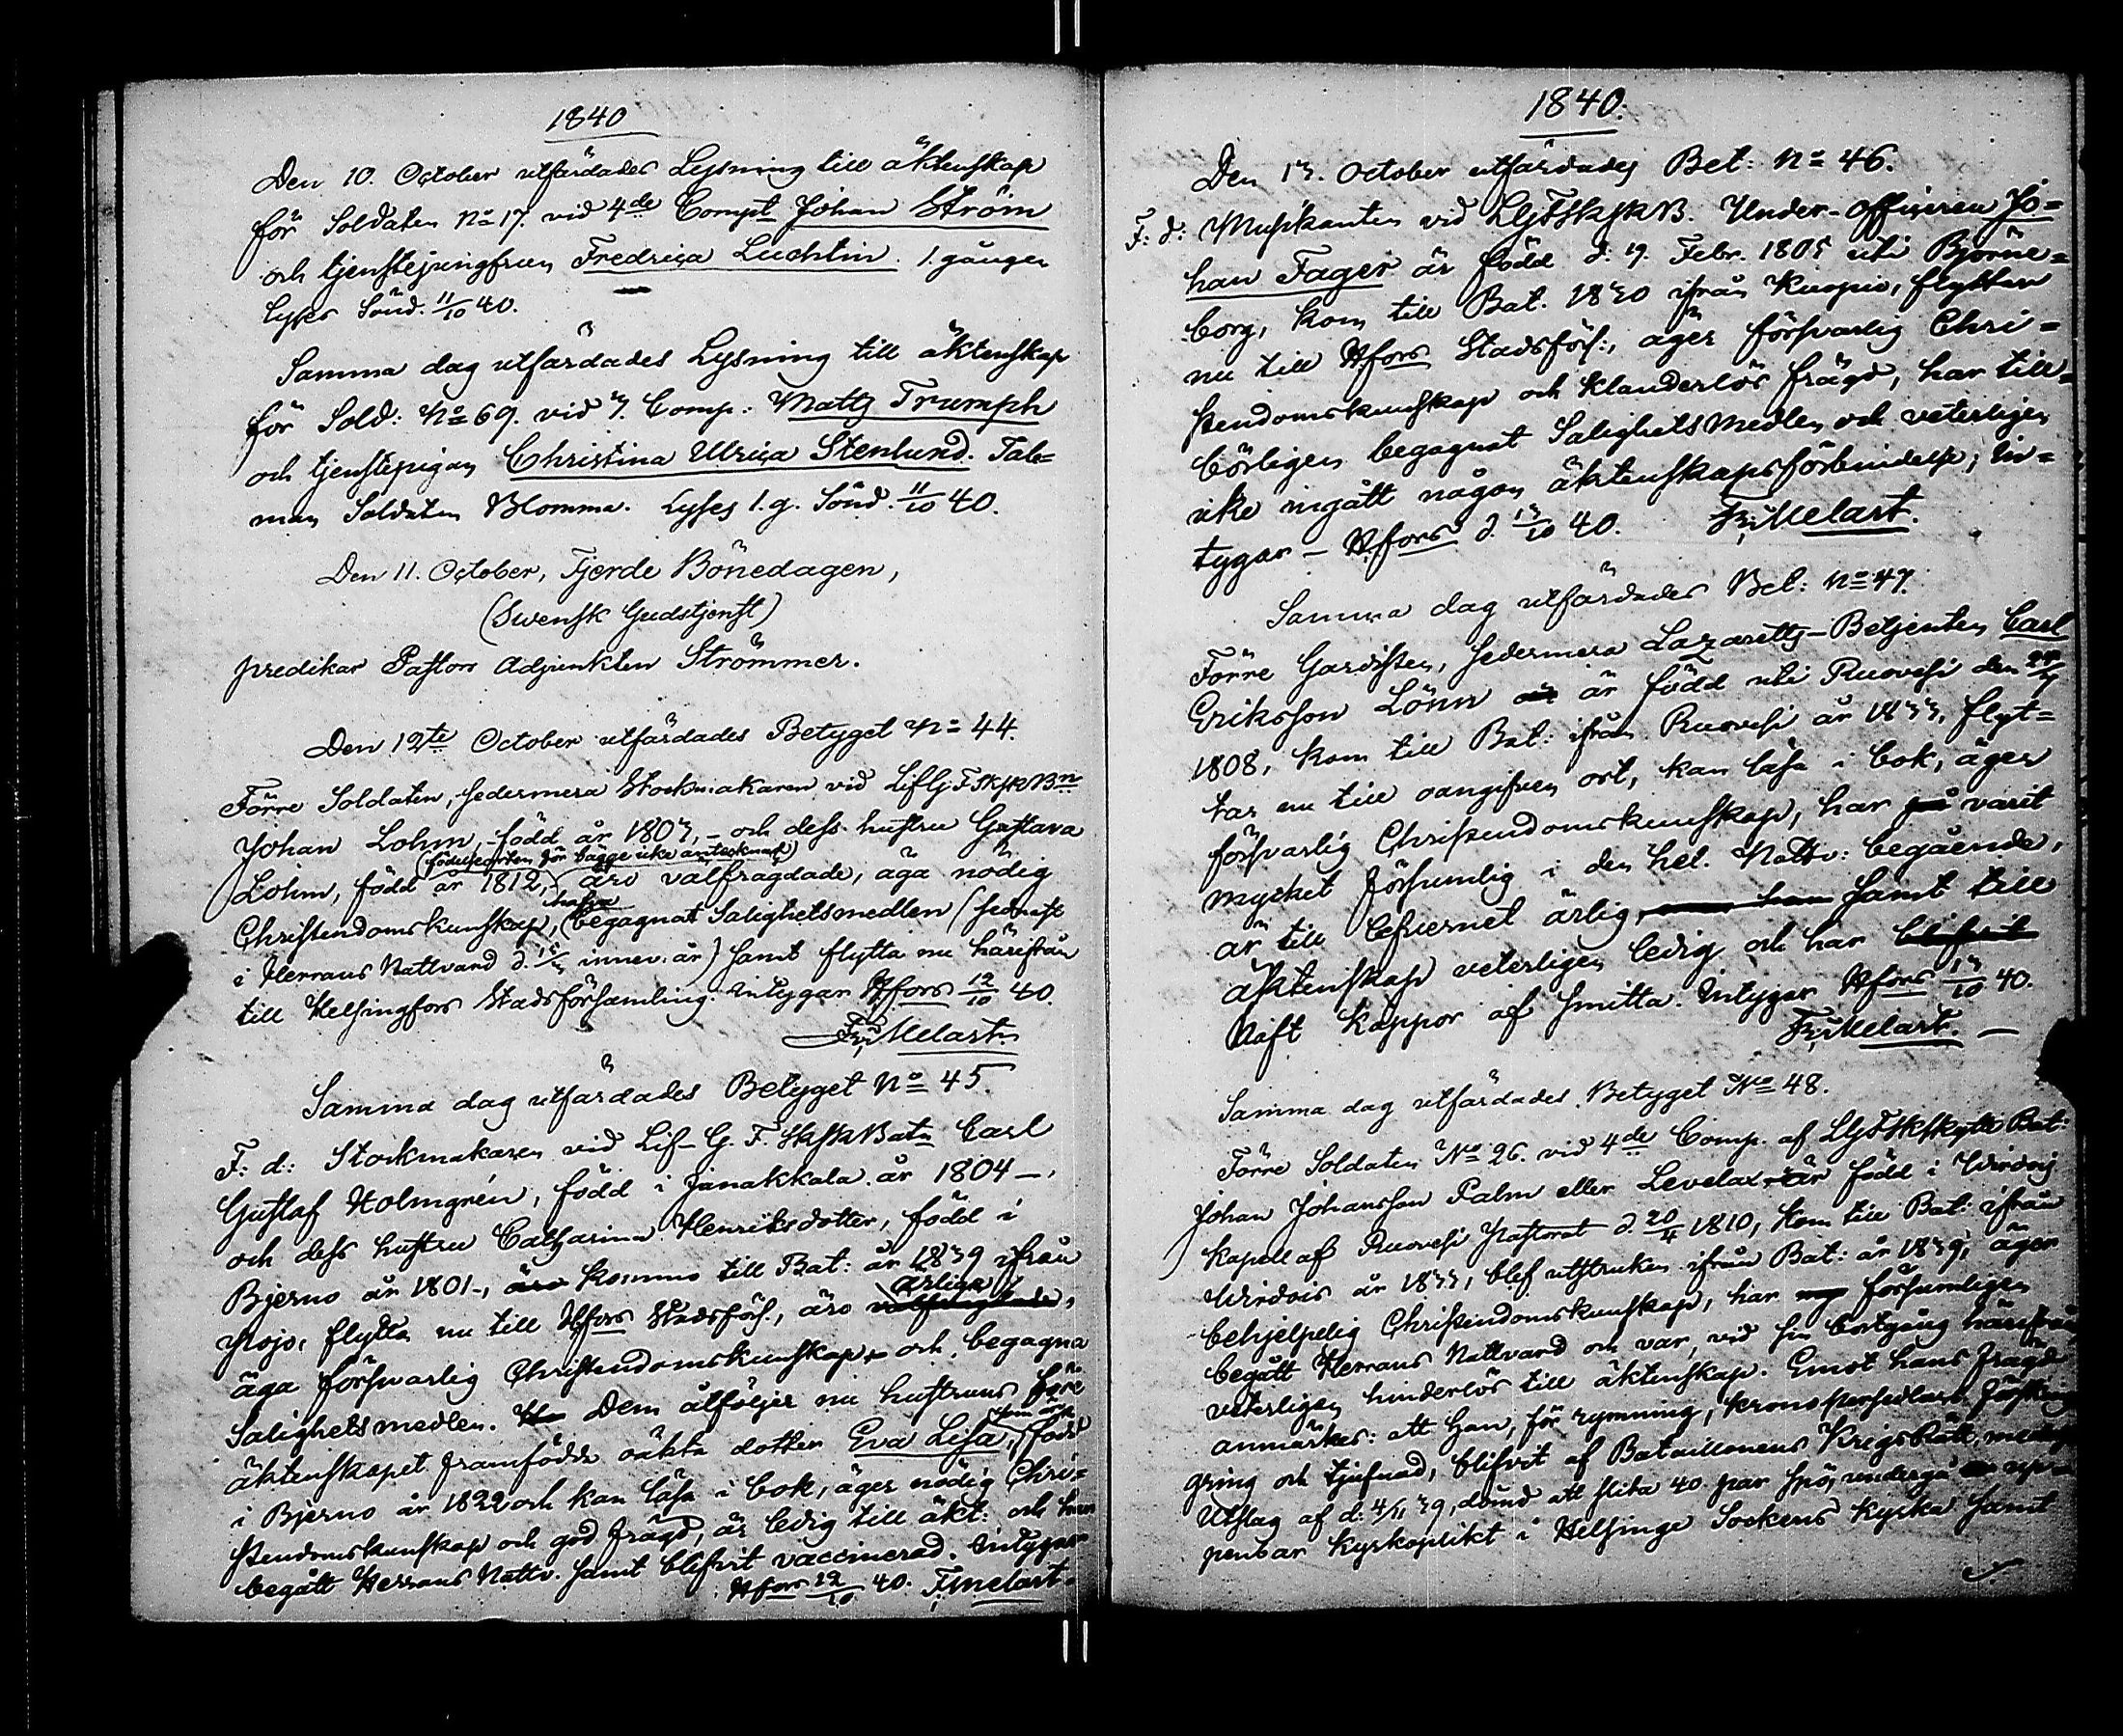 1840
Den 10. October utfärdades Lysning till äktenskap
för Soldaten No 17. vid 4de Compt Johan Ström
och tjenstejungfrun Fredrica Luchtin. 1. gången
lyses Sönd. 11/10 40.
Samma dag utfärdades Lysning till äktenskap
för Sold: No 69. vid 3. Comp: Matts Trumph
och tjenstepigan Christina Ulrica Stenlund. Tales=
man Soldaten Blomma. Lyses 1. g. Sönd. 11/10 40.
Den 11. October, Fjerde Bönedagen,
(Swensk Gudstjenst)
predikar Pastors Adjunkten Strömmer.
Den 12te October utfärdades Betyget No 44.
Förre Soldaten, sedermera Stockmakaren vid LifGFSkskBn
Johan Lohm, född år 1803, – och dess hustru Gustava
(födelseorten för bägge icke antecknad)
Lohm, född år 1812, äro välfrägdade, äga nödig
hafva
Christendomskunskap, begagnat Salighetsmedlen (sednast
i Herrans Nattvard d. innev. år) samt flytta nu härifrån
till Helsingfors Stadsförsamling. Intygar Hfors 12/10 40.
Fr; Melart.
Samma dag utfärdades Betyget No 45.
F: d: Stockmakaren vid Lif-G. F. SkskBatn Carl
Gustaf Holmgrén, född i Janakkala år 1804 –,
och dess hustru Catharina Henriksdotter, född i
Bjerno år 1801 –, äro kommo till Bat: år 1839 ifrån
ärlige
Nojo, flytta nu till Hfors Stadsförs., äro välfrägdade,
äga försvarlig Christendomskunskap, och begagna
Salighetsmedlen. Dem åtföljer nu hustruns före
som är
äktenskapet framfödde oäkta dotter Eva Lisa, född
i Bjerno år 1822 och kan läsa i bok, äger nödig Chri=
stendomskunskap och god frägd, är ledig till äkt: och har
begått Herrans Nattv. samt blifvit vaccinerad. Intygar
Hfors 12/10 40. Fr; Melart.
1840.
Den 13. October utfärdades Bet: No 46.
F: d: Musikanten vid LGFSkskB. Under-officeren Jo=
han Fager är född d. 19. Febr. 1805 uti Björne=
borg, kom till Bat. 1830 ifrån Kuopio, flyttar
nu till Hfors Stadsförs:, äger försvarlig Chri=
stendomskunskap och klanderlös frägd, har till=
börligen begagnat Salighetsmedlen och veterligen
icke ingått någon äktenskapsförbindelse; In=
tygar – Hfors d. 13/10 40. Fr; Melart.
Samma dag utfärdades Bet: No 47.
Förre Gardisten, sedermera Lazaretts-Betjenten Carl
Eriksson Lönn är född uti Ruovesi den
1808, kom till Bat: ifrån Ruovesi år 1833, flyt=
tar nu till oangifven ort, kan läsa i bok, äger
försvarlig Christendomskunskap, har varit
mycket försumlig i den hel. Nattv: begående,
är till lefvernet ärlig, samt till
äktenskap veterligen ledig och har blifvit
haft koppor af smitta. Intygar Hfors 13/10 40.
Fr; Melart. –
Samma dag utfärdades Betyget No 48.
Förre Soldaten No 26. vid 4de Comp. af LGFSkskytte Bat:
Johan Johansson Palm eller Levelax, är född i Wirdois
Kapell af Ruovesi Pastorat d. 20/4 1810, kom till Bat: ifrån
Wirdois år 1833, blef utstruken ifrån Bat: år 1839, äger
behjelpelig Christendomskunskap, har försumligen
begått Herrans Nattvard och var, vid sin bortgång härifrån
veterligen hinderlös till äktenskap. Emot hans frägd
anmärkes: att Han, för rymning, kronopersedlars förskin=
gring och tjufnad, blifvit af Bataillonens Krigs Rätt, medelst
Utslag af d: 4/11 39, dömd att slita 40 par spö, undergå up=
penbar Kyrkoplikt i Helsinge Sockens Kyrka samt